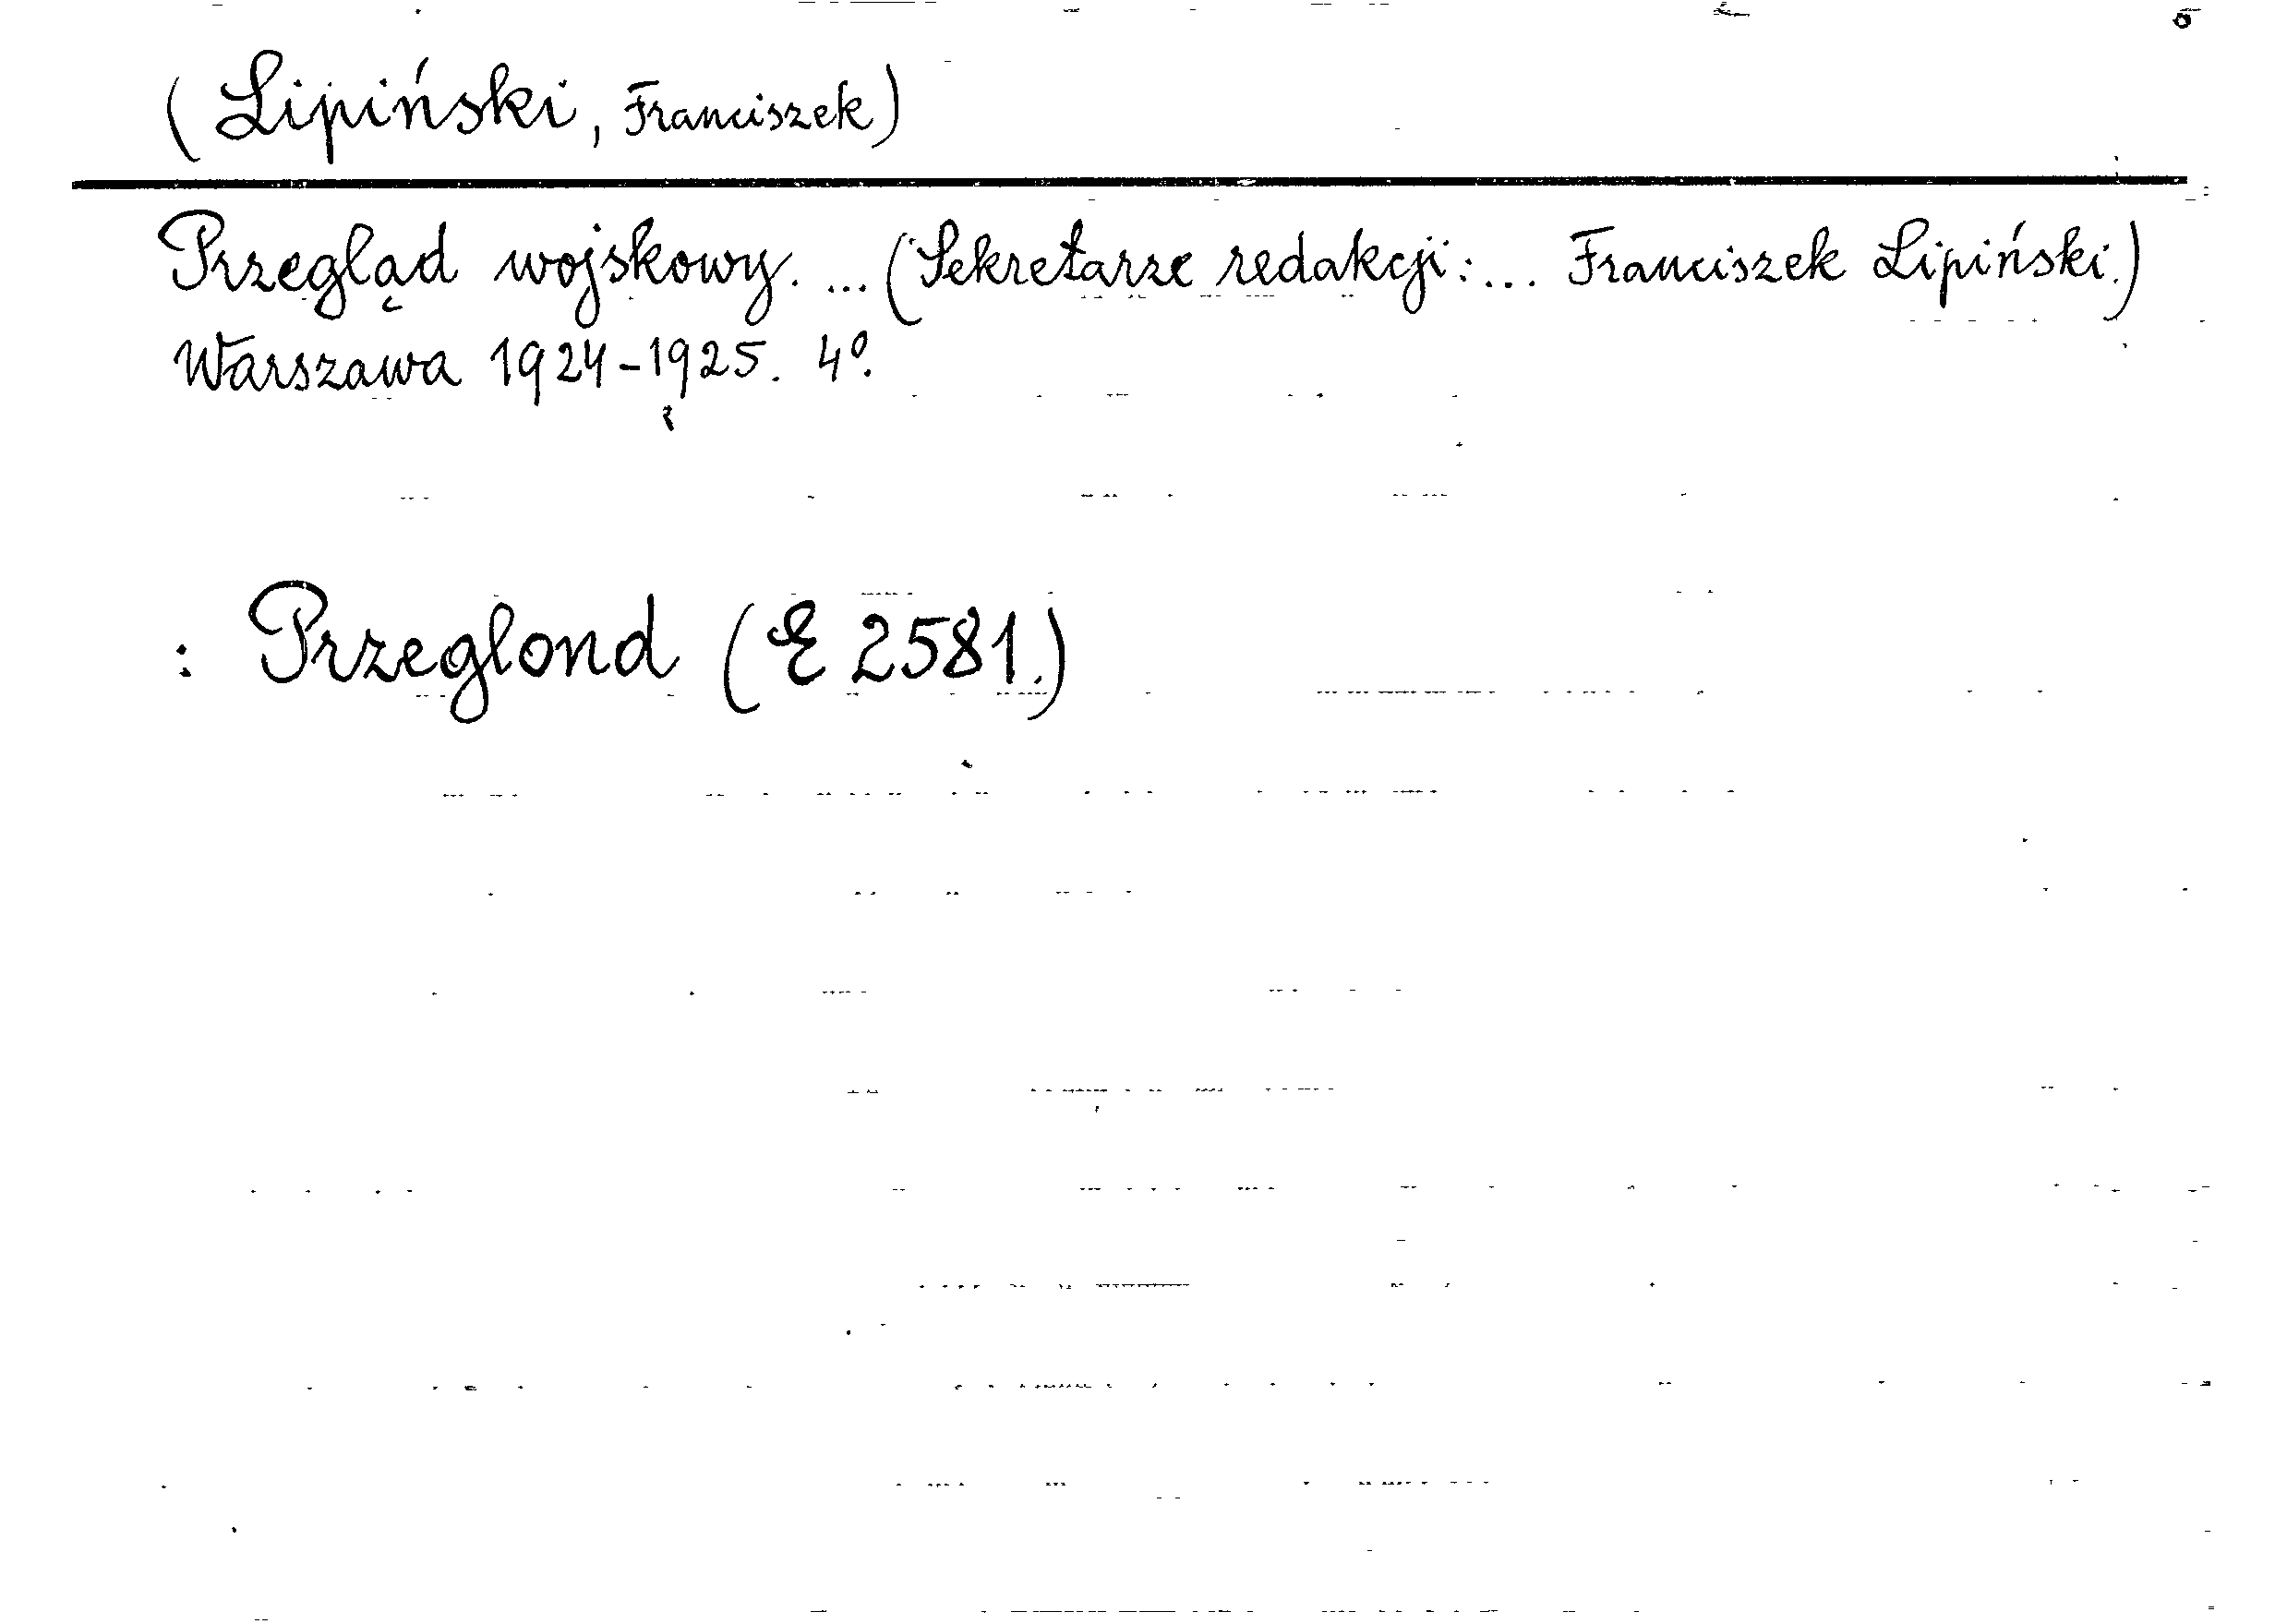 (Lipiński, Franciszek)
Przegląd wojskowy. ... (Sekretarze redakcji: ... Franciszek Lipiński.)
Warszawa 1924-1925. 4º.
: Przeglond (E 2581.)